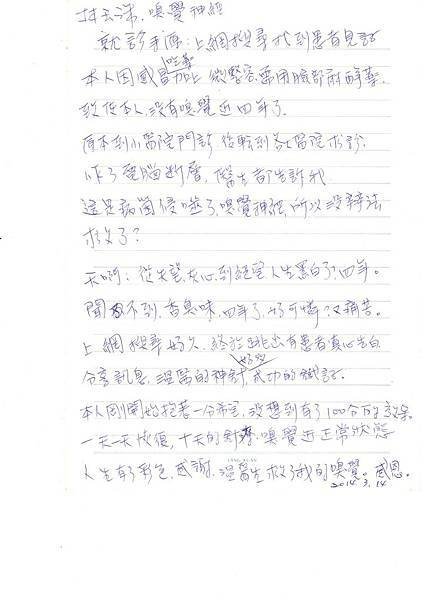 林玉洙. 嗅覺神經
就診手源:上網搜尋找到患者見証
吃藥
本人因感冒加上微整容需用臉部麻醉藥.
致使本人沒有嗅覺近四年了.
原本到小醫院門診後轉到某醫院求診.
作了電腦斷層, 醫生都告訴我
這是病菌侵噬了嗅覺神經,所以沒辦法
救了?
天啊:從失望.灰心到絕望人生黑白了.四年。
聞不到.香臭味.四年了.好可憐?又痛苦。
上網搜尋好久.終於跳出有患者真心告白
好ाल
分享訊息.溫醫的神針.成功的見証.
本人剛開始抱著一分希望.沒想到有了100分的效果
一天一天恢復,十天的針療.嗅覺近正常狀態
人生有了彩色.感謝.溫醫生救了我的嗅覺。感恩。
2014.3.14